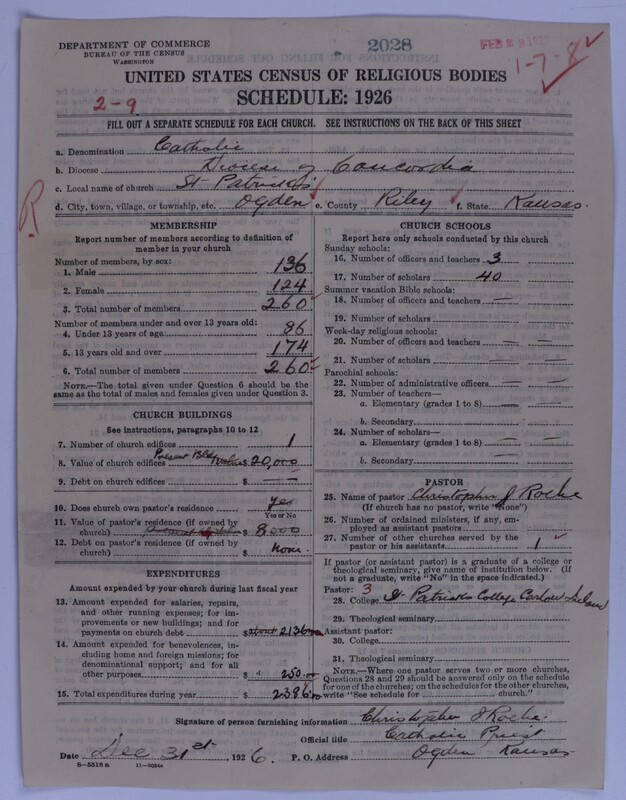 DEPARTMENT OF COMMERCE
BUREAU OF THE CENSUS
WASHINGTON
2028
1-7-8
UNITED STATES CENSUS OF RELIGIOUS BODIES
2-9
SCHEDULE: 1926
FILL OUT A SEPARATE SCHEDULE FOR EACH CHURCH. SEE INSTRUCTIONS ON THE BACK OF THIS SHEET
a. Denomination Catholic
b. Diocese Diocese of Concordia
c. Local name of church St Patrick's
d. City, town, village, or township, etc. Ogden e. County Riley f. State Kansas.
R
MEMBERSHIP
Report number of members according to definition of
member in your church
Number of members, by sex:
1. Male 136
2. Female 124
3. Total number of members 260
Number of members under and over 13 years old:
4. Under 13 years of age 86
5. 13 years old and over 174
6. Total number of members 260
NOTE.—The total given under Question 6 should be
same as the total of males and females given under Question 3.
CHURCH BUILDINGS
See instructions, paragraphs 10 to 12
7. Number of church edifices 1
8. Value of church edifices Present Bldg value $ 20,000
9. Debt on church edifices $ —
10. Does church own pastor's residence yes
Yes or No
11. Value of pastor's residence (if owned by
church) $ 8000
12. Debt on pastor's residence (if owned by
church) $ None.
EXPENDITURES
Amount expended by your church during last fiscal year
13. Amount expended for salaries, repairs,
and other running expenses; for im-
provements or new buildings; and for
payments on church debt $ about 2136.00
14. Amount expended for benevolences, in-
cluding home and foreign missions; for
denominational support; and for all
other purposes $ 250.00
15. Total expenditures during year $ 2386.00
CHURCH SCHOOLS
Report here only schools conducted by this church
Sunday schools:
16. Number of officers and teachers 3
17. Number of scholars 40
Summer vacation Bible schools:
18. Number of officers and teachers —
19. Number of scholars —
Week-day religious schools:
20. Number of officers and teachers —
21. Number of scholars —
Parochial schools:
22. Number of administrative officers —
23. Number of teachers—
a. Elementary (grades 1 to 8) —
b. Secondary
24. Number of scholars—
a. Elementary (grades 1 to 8) —
b. Secondary —
PASTOR
25. Name of pastor Christopher J Roche
(If church has no pastor, write "None")
26. Number of ordained ministers, if any, em-
ployed as assistant pastors
27. Number of other churches served by the
pastor or his assistants 1
If pastor (or assistant pastor) is a graduate of a college or
theological seminary, give name of institution below. (If
not a graduate, write "No" in the space indicated.)
Pastor: 3
28. College St Patricks College Carlow Ireland
29. Theological seminary
Assistant pastor:
30. College
31. Theological seminary
NOTE.—Where one pastor serves two or more churches,
Questions 28 and 29 should be answered only on the schedule
for one of the churches; on the schedules for the other churches,
write "See schedule for church."
Signature of person furnishing information Christopher J Roche.
Official title Catholic Priest
Date Dec 31st, 1926. P. O. Address Ogden Kansas
8—5518a 11—9034a